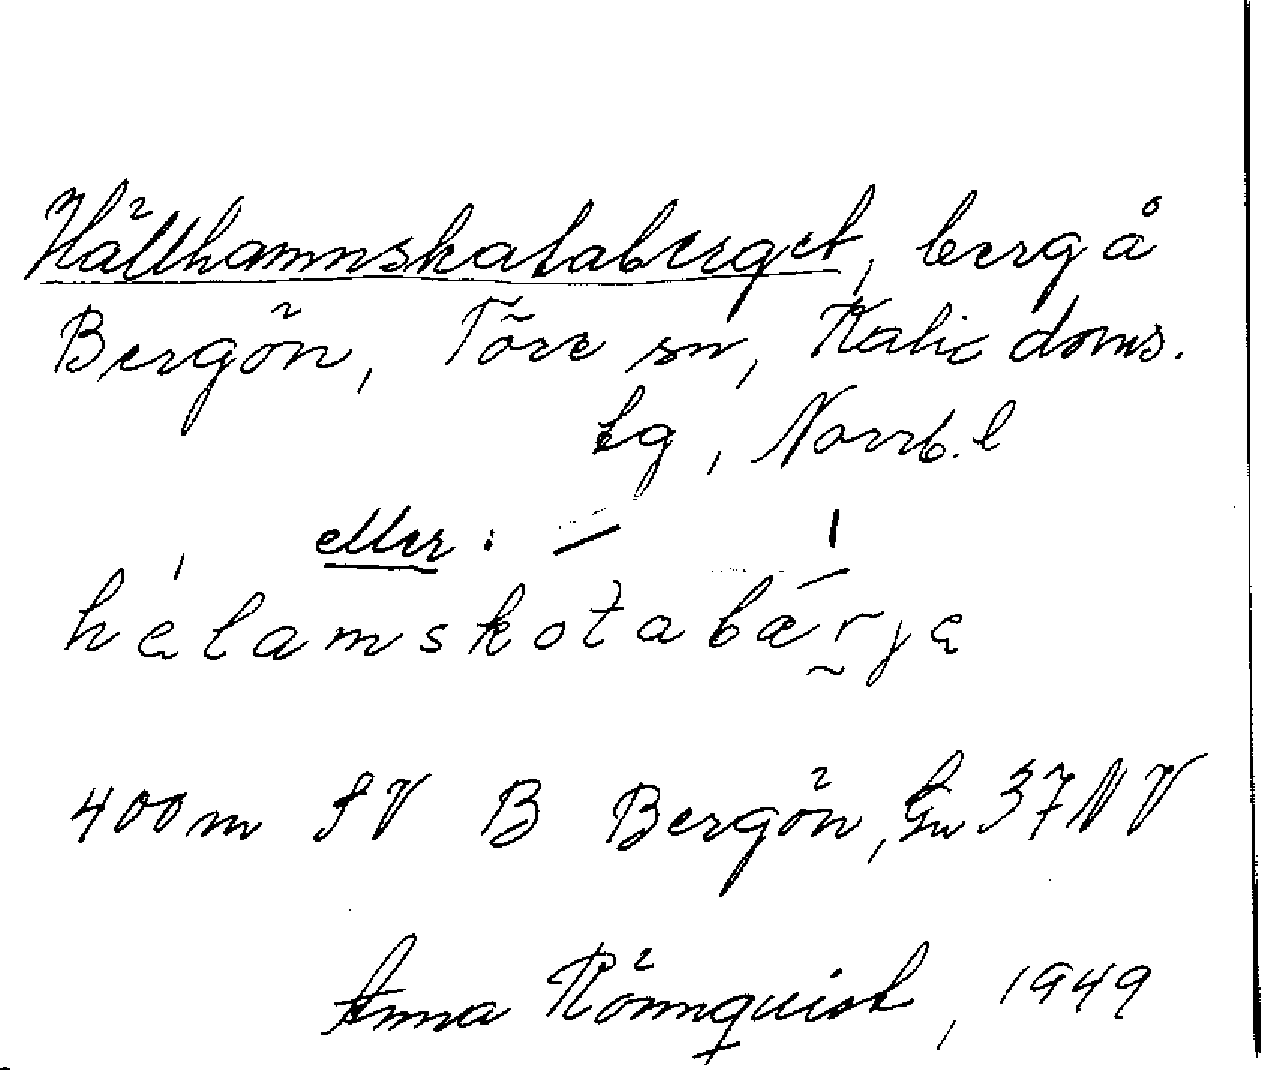 Hällhamnskataberget, berg å
Bergön, Töre sn, Kalix doms.
tg, Norrb. l
eller:
hälamskotabærja
400 m SV B Bergön, Lu 37 NV
Anna Rönnquist, 1949